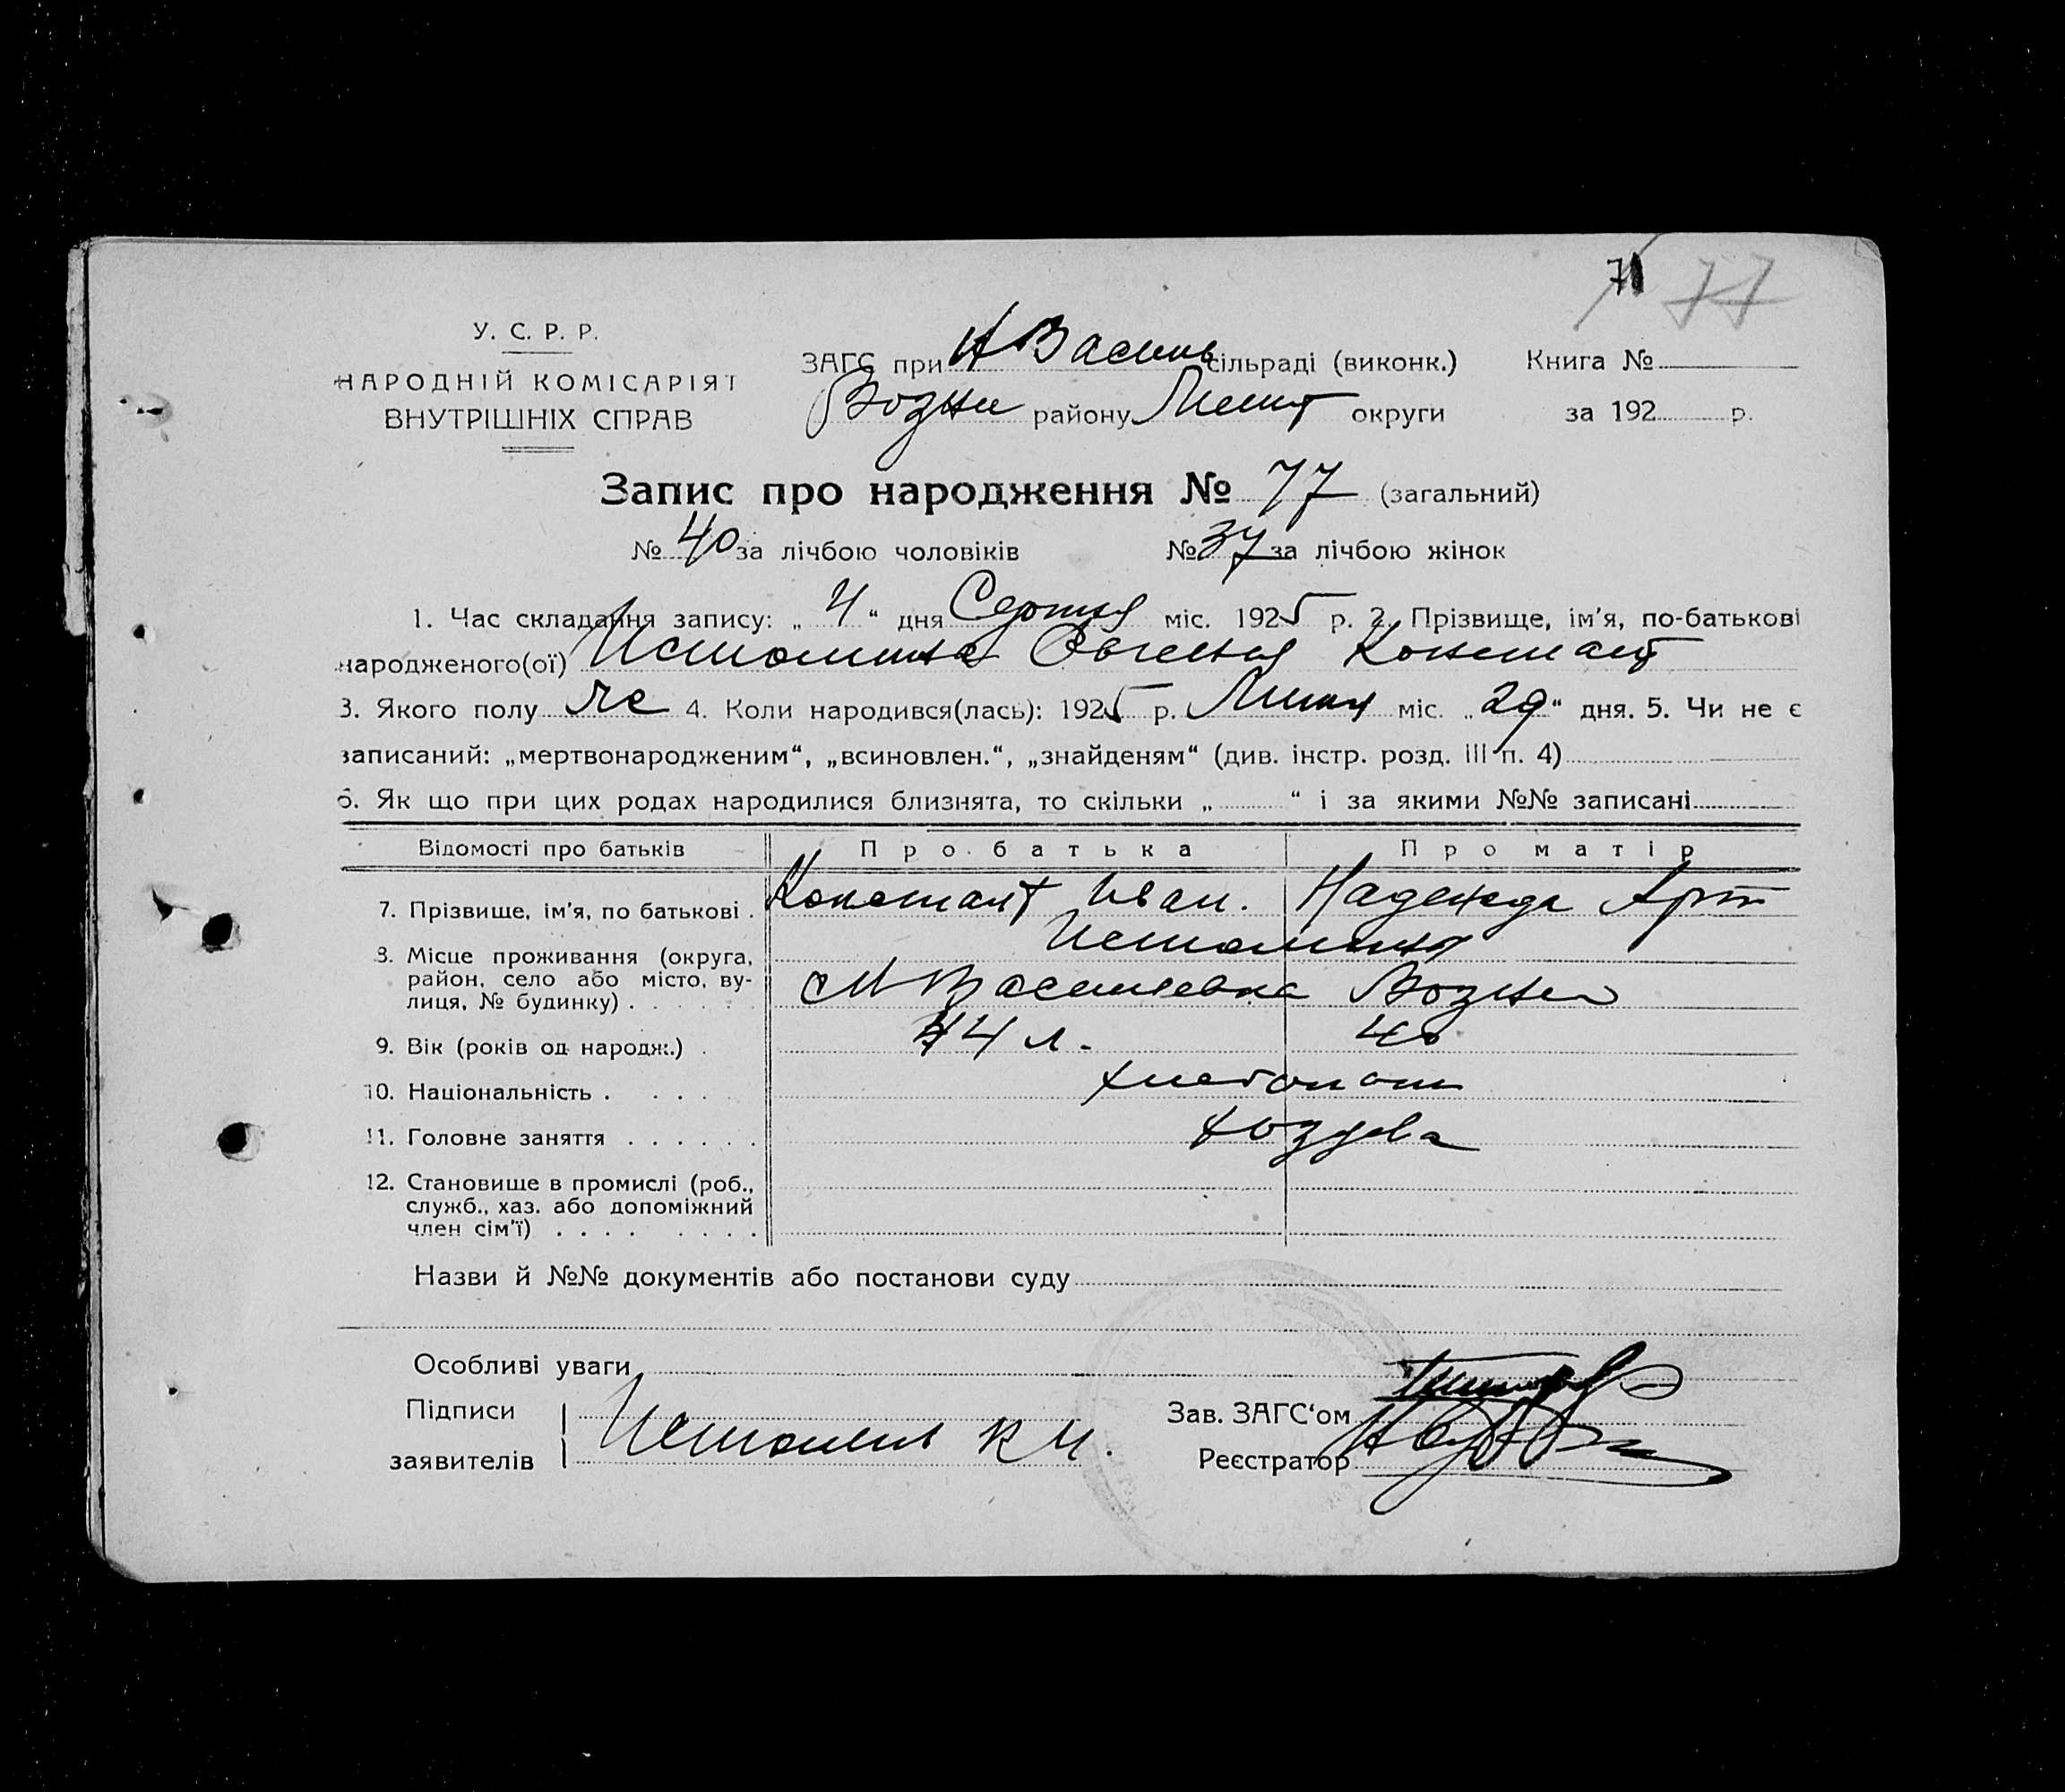 71 77
У. С. Р. Р.
НАРОДНІЙ КОМІСАРІЯТ
ВНУТРІШНІХ СПРАВ
ЗАГС при Н Василь сільраді (виконк.) Книга №
Возне району Мелит округи за 192 р.
Запис про народження № 77 (загальний)
№ 40 за лічбою чоловіків № 37 за лічбою жінок
1. Час складання запису: „ 4 “ дня Серпня міс. 1925 р. 2. Прізвище, ім’я, по-батькові
народженого(ої) Истомина Евгения Констант
3. Якого полу же 4. Коли народився(лась): 1925 р. Липня міс. „ 29 “ дня. 5. Чи не є
записаний: „мертвонародженим“, „всиновлен.“, „знайденям“ (див. інстр. розд. III п. 4)
6. Як що при цих родах народилися близнята, то скільки „ “ і за якими №№ записані
Відомості про батьків Про батька Про матір
7. Прізвище, ім’я, по батькові . Констант Иван. Надежда Арт
Истомины
8. Місце проживання (округа,
район, село або місто, ву-
лиця, № будинку) . Василевка Возне
9. Вік (років од народж.) . 44 л. 40
10. Національність .
11. Головне заняття
12. Становище в промислі (роб.,
служб., хаз. або допоміжний
член сім’ї)
Назви й №№ документів або постанови суду
Особливі уваги
Підписи
заявителів Истомин К И.
Зав. ЗАГС‘ом
Реєстратор